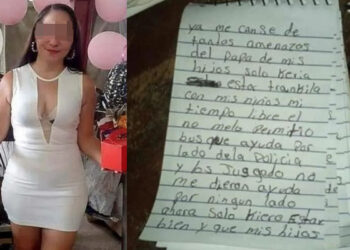 ya me canse de
tantas amenazas
del Papa de mis
hijos solo keria
estar trankila
con mis niños mi
tiempo libre el
no melo permitio
busque ayuda por
lado dela Policia
y los Jusgado no
me dieran ayuda
por ningun lado
ahora solo kiero Estar
bien y que mis hijos